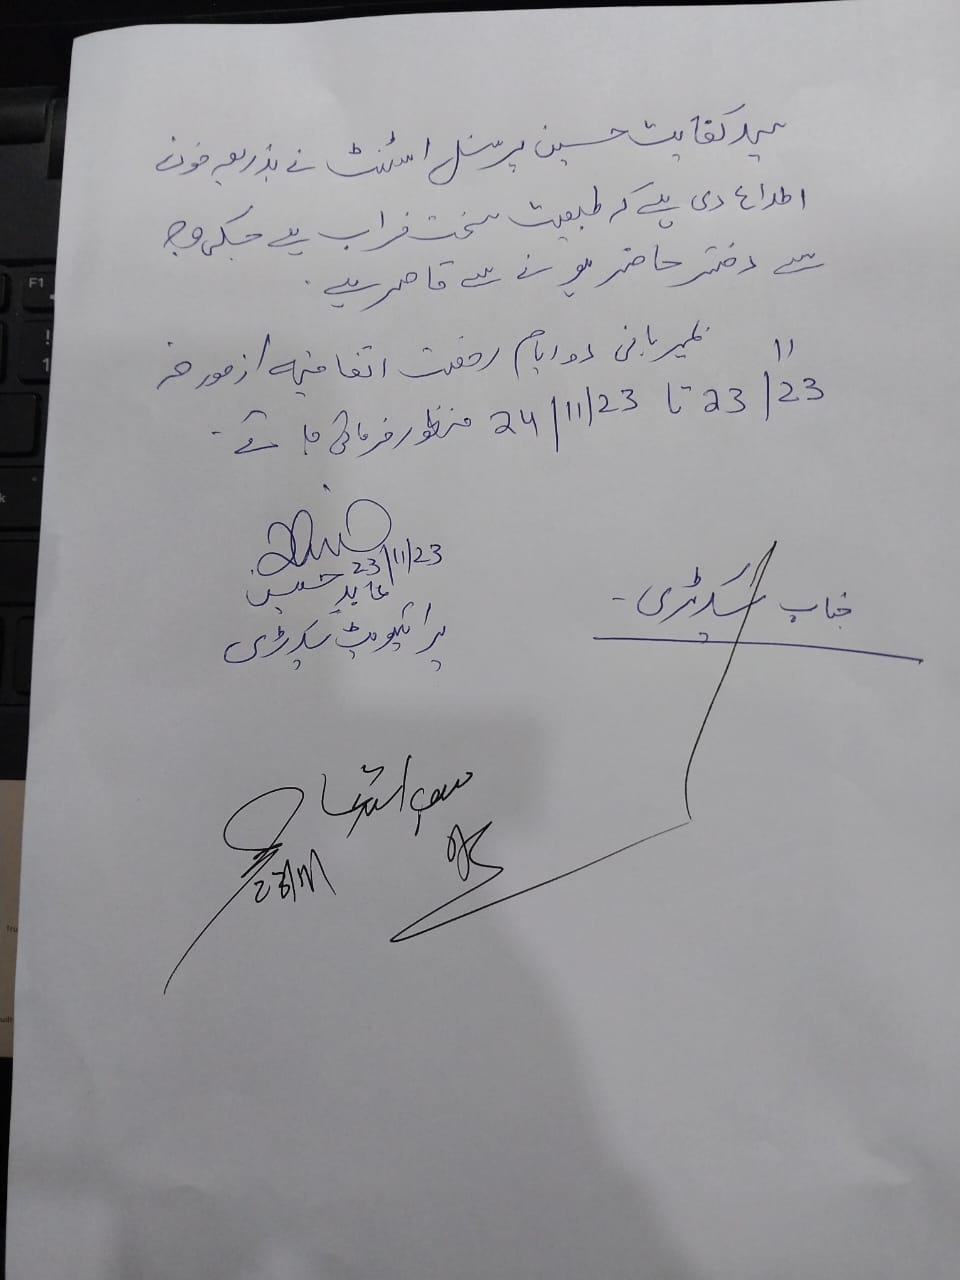 سید کفایت حسین پرسنل اسٹنٹ نے بذریعہ فون
اطلاع دی ہے کہ طبیعت سخت خراب ہے جسکی وجہ
سے دفتر حاضر ہونے سے قاصر ہے۔
بمہربانی دو ایام رخصت اتفاقیہ از مورخہ
23/11/23 تا 24/11/23 منظور فرمائی جائے۔
23/11/23
عابد حسین
پرائیویٹ سیکرٹری
جناب سیکرٹری۔